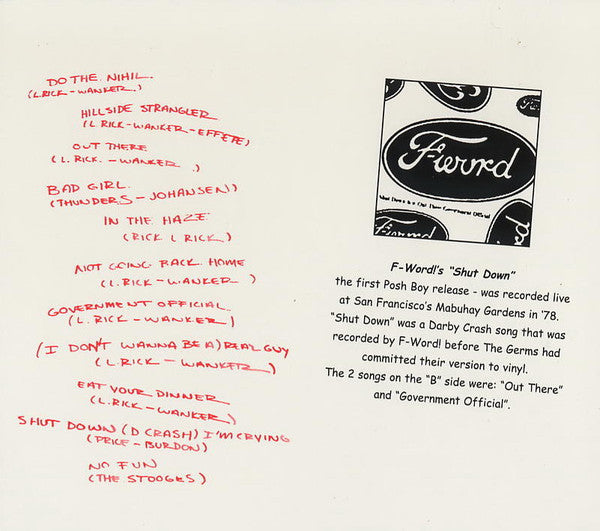 DO THE NIHIL.
(L.RICK - WANKER.)
HILLSIDE STRANGLER
(L. RICK - WANKER - EFFETE)
OUT THERE
(L. RICK. - WANKER .)
BAD GIRL.
(THUNDERS - JOHANSEN)
IN THE HAZE
(RICK L RICK.)
NOT GOING BACK HOME
(L. RICK - WANKER)
GOVERNMENT OFFICIAL.
(L. RICK - WANKER)
(I DON'T WANNA BE A) REAL GUY
(L RICK - WANKER)
EAT YOUR DINNER
(L.RICK - WANKER)
SHUT DOWN (D CRASH) I'M CRYING
(PRICE - BURDON)
NO FUN
(THE STOOGES)
Fword
What Does is a Out There Government Official
F-Word!'s "Shut Down"
the first Posh Boy release - was recorded live
at San Francisco's Mabuhay Gardens in '78.
"Shut Down" was a Darby Crash song that was
recorded by F-Word! before The Germs had
committed their version to vinyl.
The 2 songs on the "B" side were: "Out There"
and "Government Official".